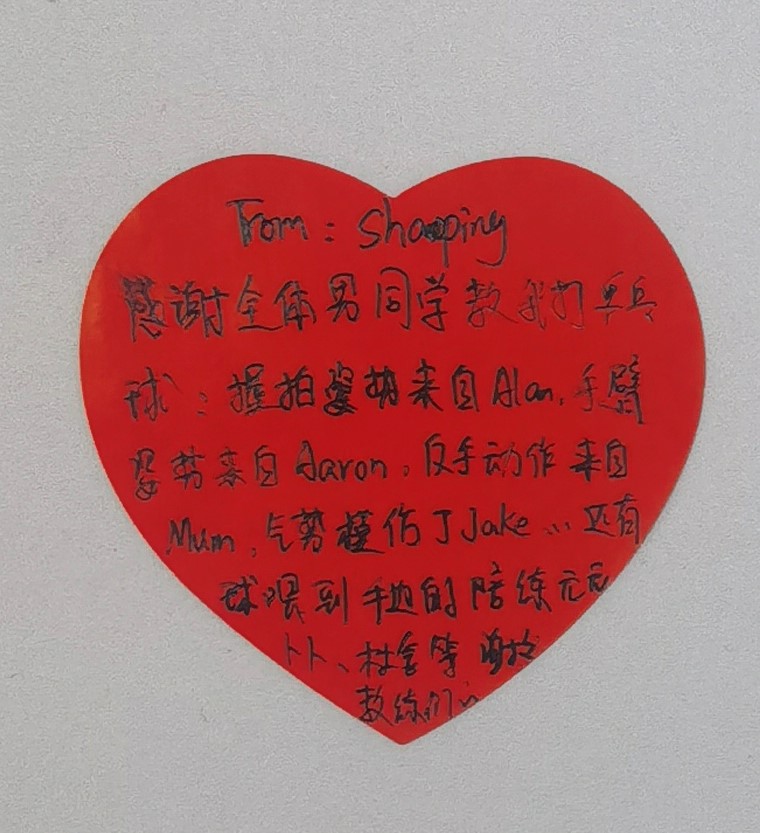 From: Shaoping
感谢全体男同学教我打乒乓
球:握拍姿势来自Alan,手臂
姿势来自Aaron,反手动作来自
Mum,气势模仿了Jake...还有
球喂到手边的陪练元元
卜卜、村舍等
教练们